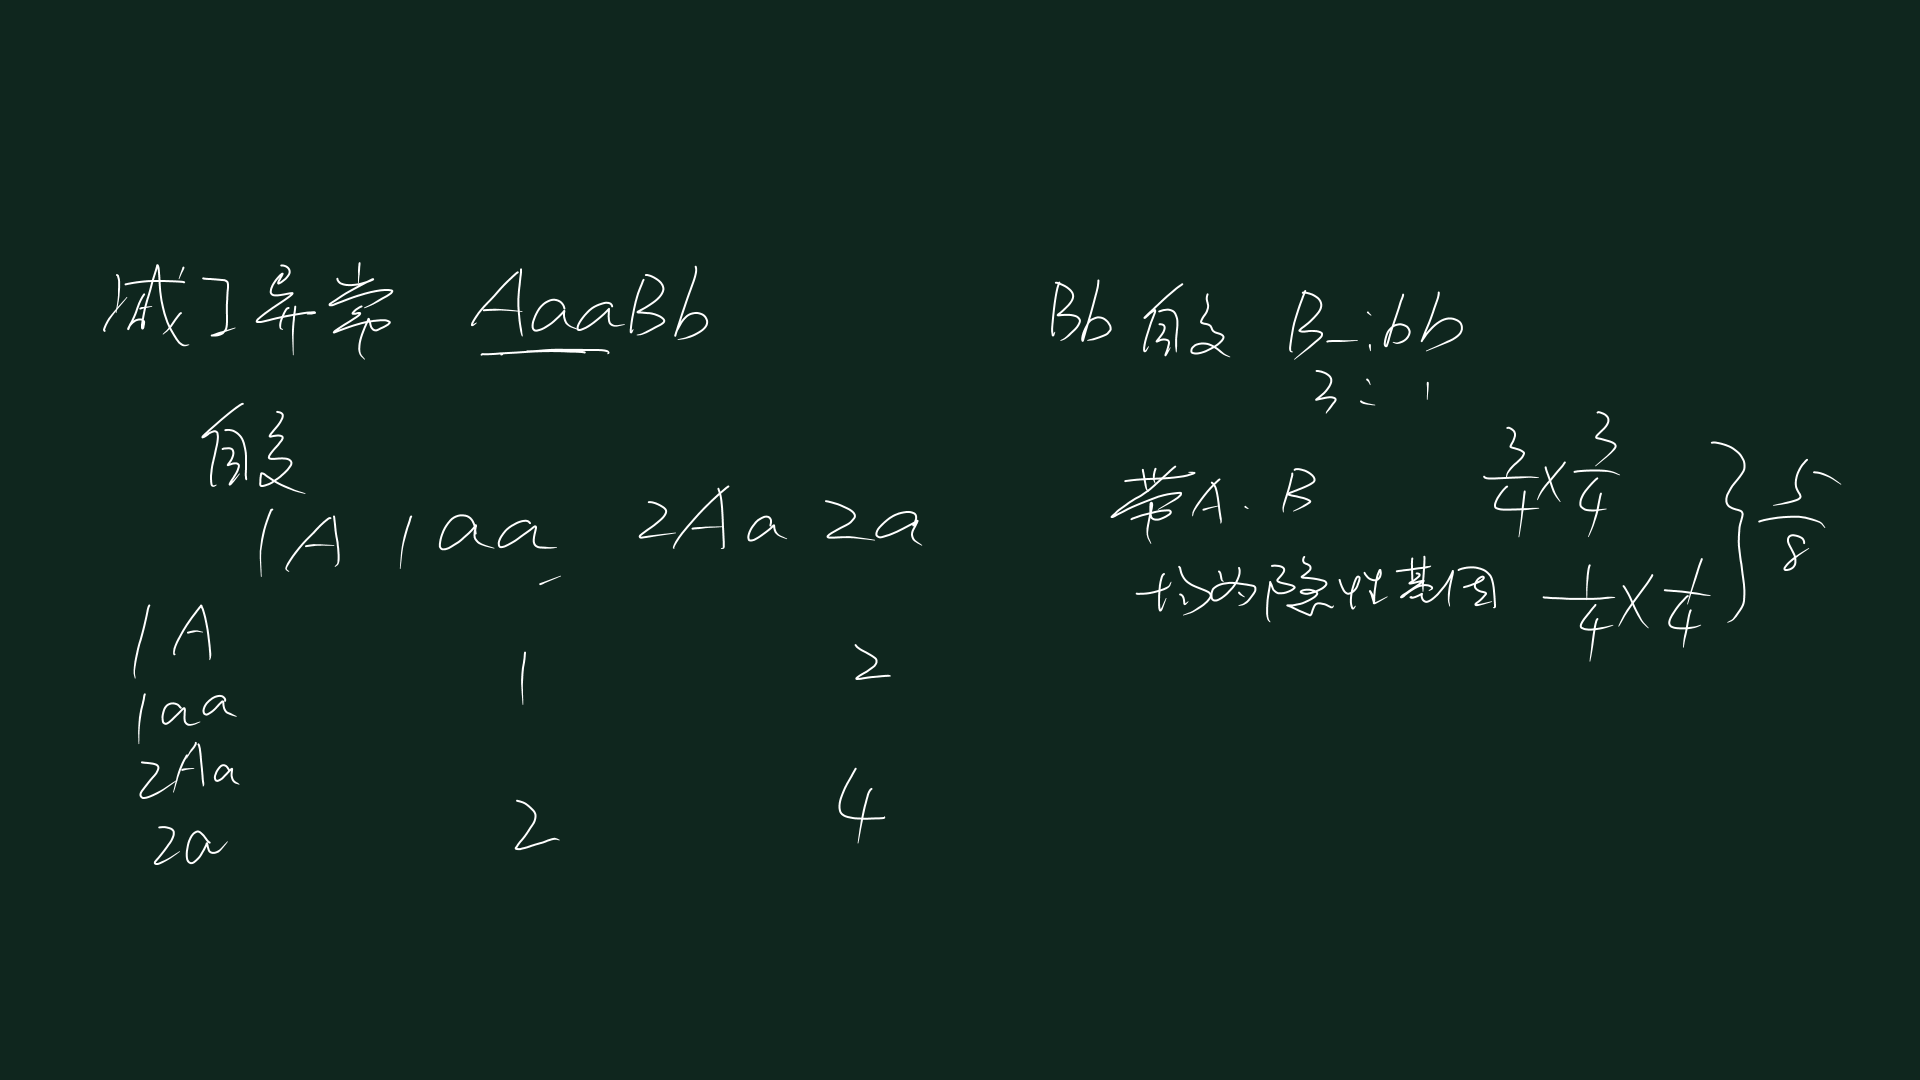 减I异常 AaaBb
自交
1A 1aa 2Aa 2a
1A
1aa 1 2
2Aa
2a 2 4
Bb自交 B_:bb
3:1
带A.B 3/4×3/4
均为隐性基因 1/4×1/4
} 5/8